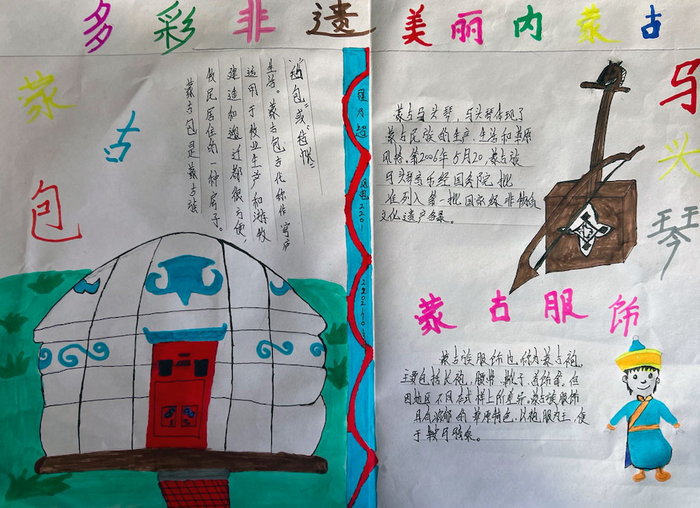 多彩非遗 美丽内蒙古
蒙古包
蒙古包是蒙古族
牧民居住的一种房子。
建造和搬迁都很方便,
适用于牧业生产和游牧
生活。蒙古包古代称作穹庐
"毡包"或"毡帐"
马头琴
蒙古马头琴,马头琴体现了
蒙古民族的生产、生活和草原
风格。第2006年5月20,蒙古族
马头琴音乐经国务院批
准列入第一批国家级非物质
文化遗产名录。
蒙古服饰
蒙古族服饰也称为蒙古袍,
主要包括长袍、腰带、靴子、首饰等。但
因地区不同在式样上的差异。蒙古族服饰
具有浓郁的草原特色,以袍服为主,便
于鞍马骑乘。